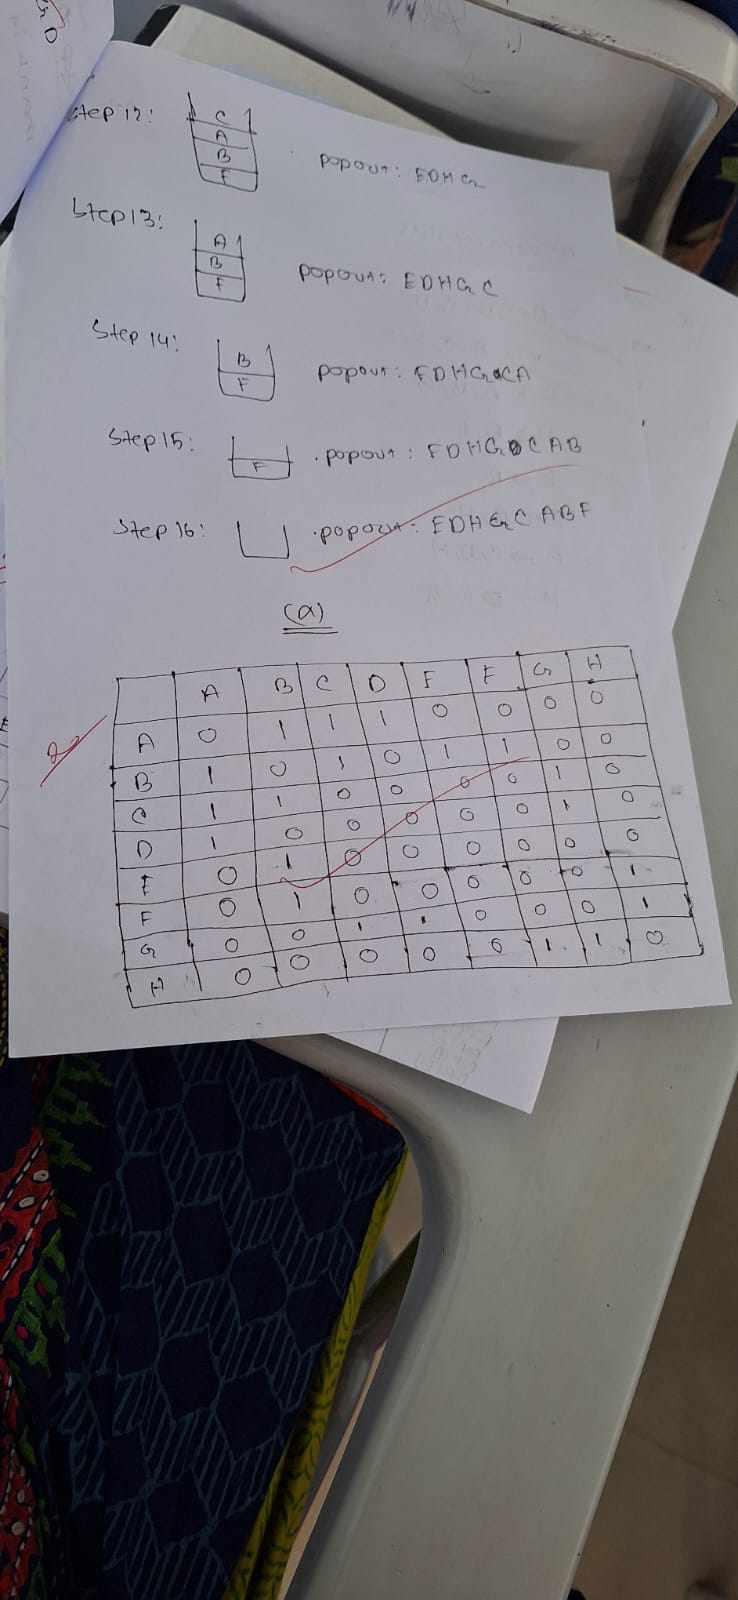 Step 12: C A B F popout: EDHG
Step 13: A B F popout: EDHGC
Step 14: B F popout: EDHGCA
Step 15: F popout: EDHGCAB
Step 16: popout: EDHGCABF
(a)
A B C D E F G H
A 0 1 1 1 0 0 0 0
B 1 0 1 0 1 1 0 0
C 1 1 0 0 0 0 1 0
D 1 0 0 0 0 0 1 0
E 0 1 0 0 0 0 0 0
F 0 1 0 0 0 0 0 1
G 0 0 1 1 0 0 0 1
H 0 0 0 0 0 1 1 0